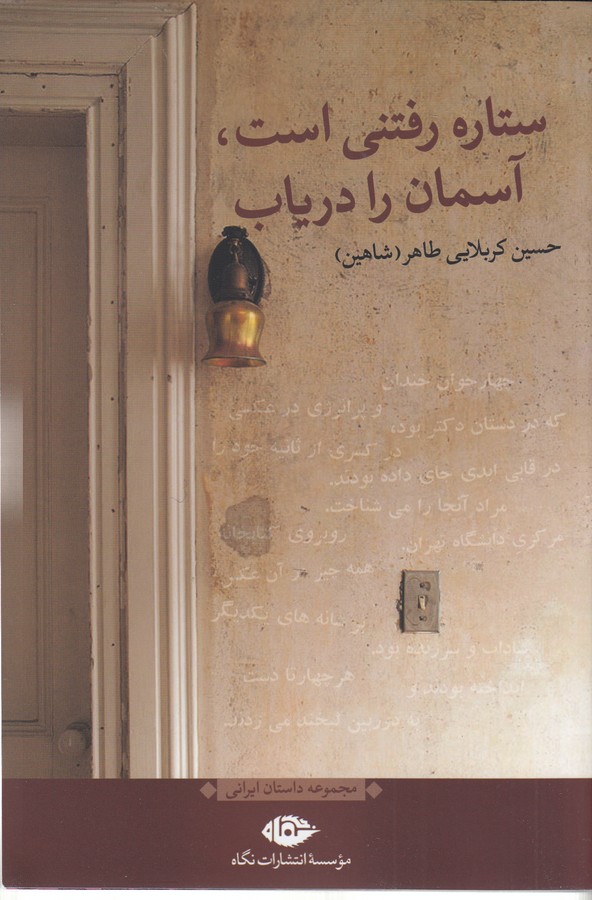 ستاره رفتنی است،
آسمان را دریاب
حسین کربلایی طاهر (شاهین)
چهار جوان خندان
و پرانرژی در عکسی
که در دستان دکتر بود،
در کسری از ثانیه خود را
در قابی ابدی جای داده بودند.
مراد آنجا را می شناخت.
روبروی کتابخانه
مرکزی دانشگاه تهران.
همه چیز در آن عکس
بر شانه های یکدیگر
شاداب و سرزنده بود.
هر چهارتا دست
انداخته بودند و
به دوربین لبخند می زدند.
مجموعه داستان ایرانی
نگاه
مؤسسهٔ انتشارات نگاه